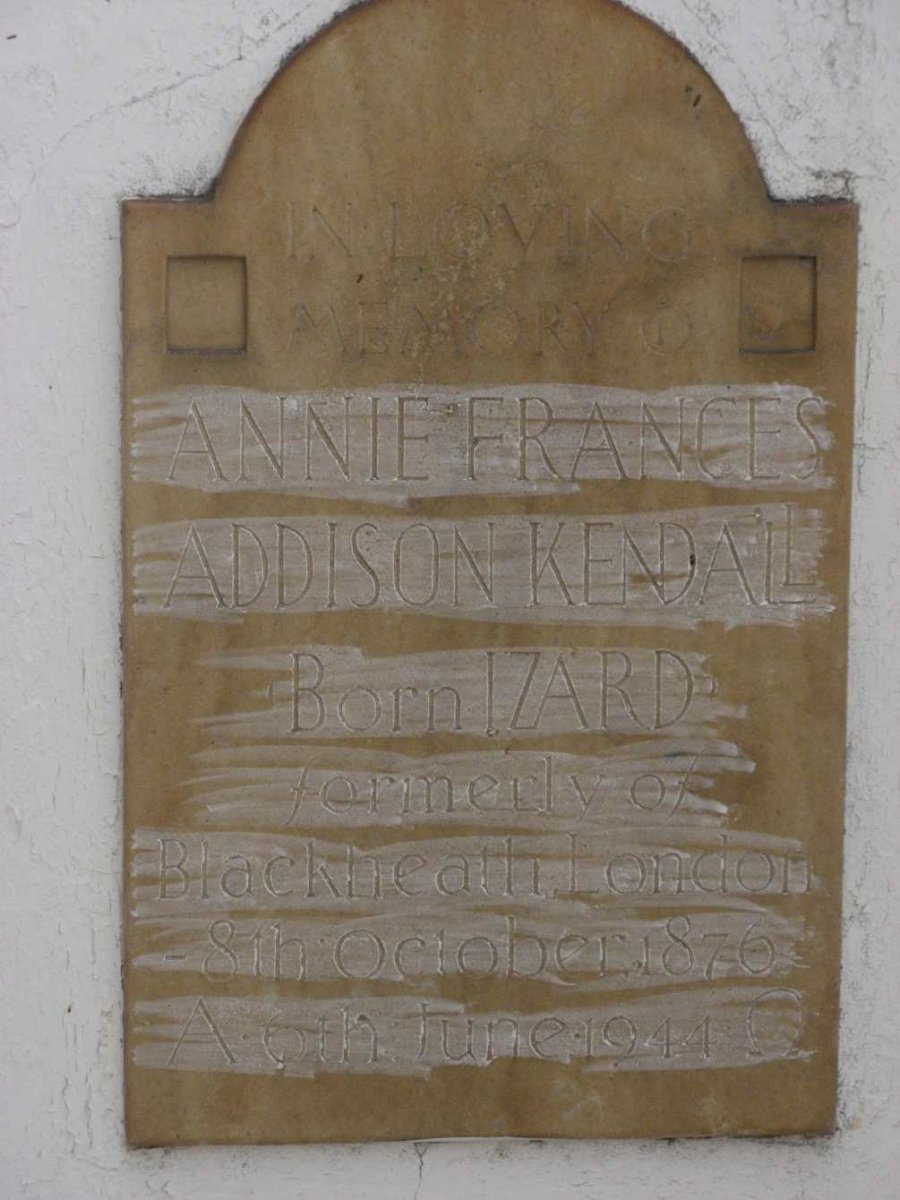 IN LOVING
MEMORY OF
ANNIE FRANCES
ADDISON KENDALL
Born IZARD
formerly of
Blackheath, London
- 8th October 1876
A · 6th · June · 1944 · Ω